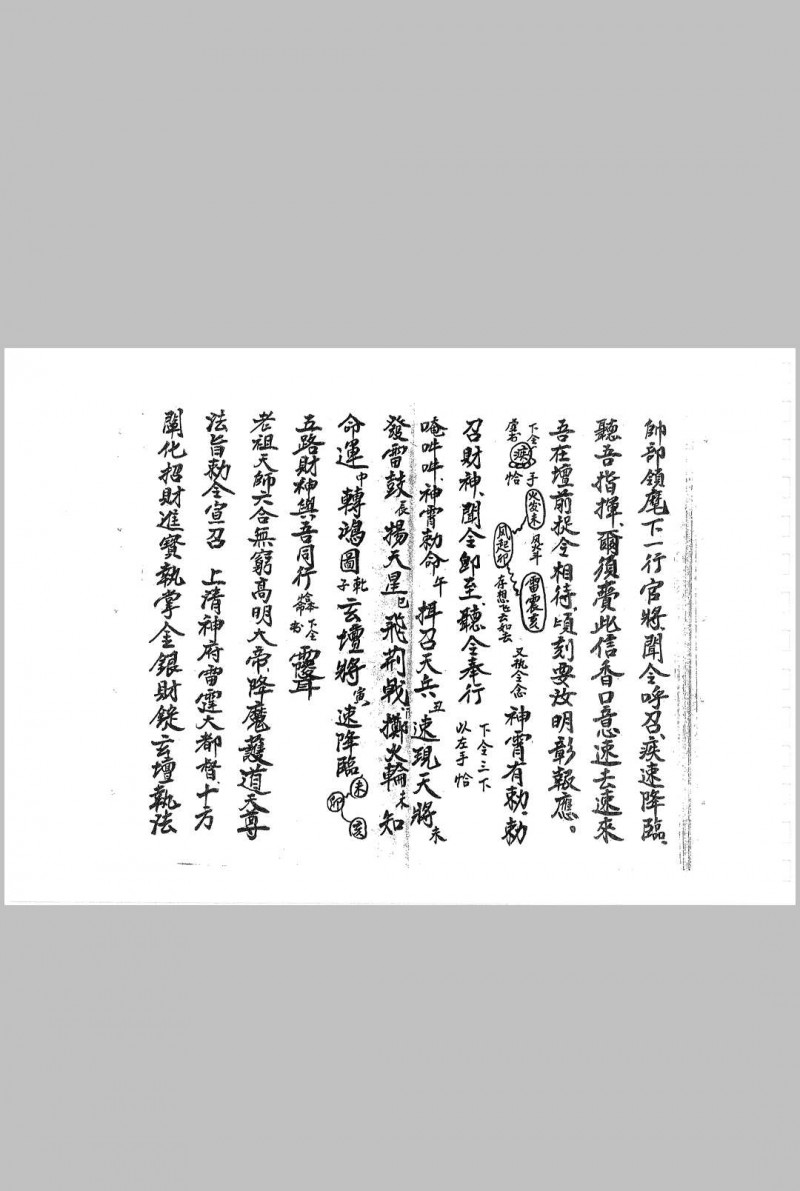 帥部領麾下一行官將、聞令呼召、疾速降臨、
聽吾指揮、爾須賫此信香口意速去速來
吾在壇前捉令相待、頃刻要汝明彰報應。
下令 虛書 疾 手 恰 火发未 風起卯 雷震亥 存想 又執令念 神霄有勅、勅
召財神、聞令即至、聽令奉行 下令三下 以左手恰
唵吽吽、神霄勅命午 揖召天兵丑 速現天將未
發雷鼓辰 揚天星巳 飛荆戟、擲火輪未 知
命運申 轉鴻圖乾子 玄壇將寅 速降臨 未 卯 亥
五路財神與吾同行 下令 書
老祖天師六合無窮高明大帝、降魔護道天尊
法旨勅令宣召 上清神府雷霆大都督、十方
闡化招財進寶執掌金銀財錠玄壇執法